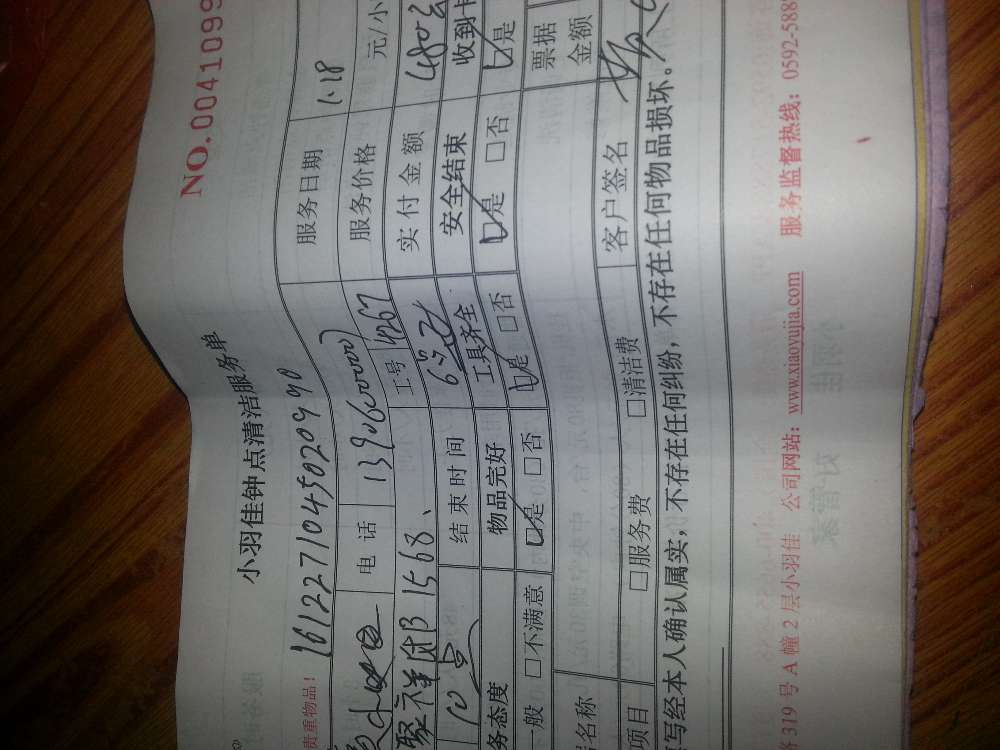 NO.0041099
小羽佳钟点清洁服务单
贵重物品！ 1612271045020990 服务日期 1.18
电话 13906000000 工号 4267 服务价格 元/小
1568、 实付金额 480元
10点 结束时间 6点 安全结束 收到卡
务态度 物品完好 工具齐全 是 否 是
一般 不满意 是 否 是 否 票据
名称 金额
项目 服务费 清洁费 客户签名
写经本人确认属实，不存在任何纠纷，不存在任何物品损坏。
319号A幢2层小羽佳 公司网站：www.xiaoyujia.com 服务监督热线：0592-588